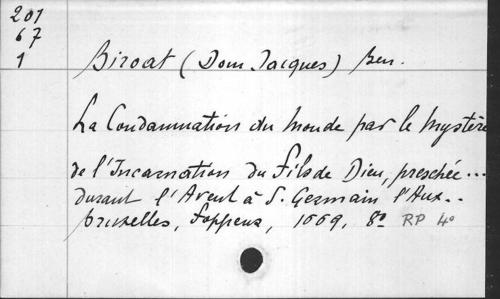 201
67
1
Biroat (Dom Jacques) Ben.
La Condamnation du Monde par le Mystère
de l'Incarnation du Fils de Dieu, preschée...
durant l'Avent à S. Germain l'Aux..
bruxelles, Foppens, 1669, 8º RP 4º